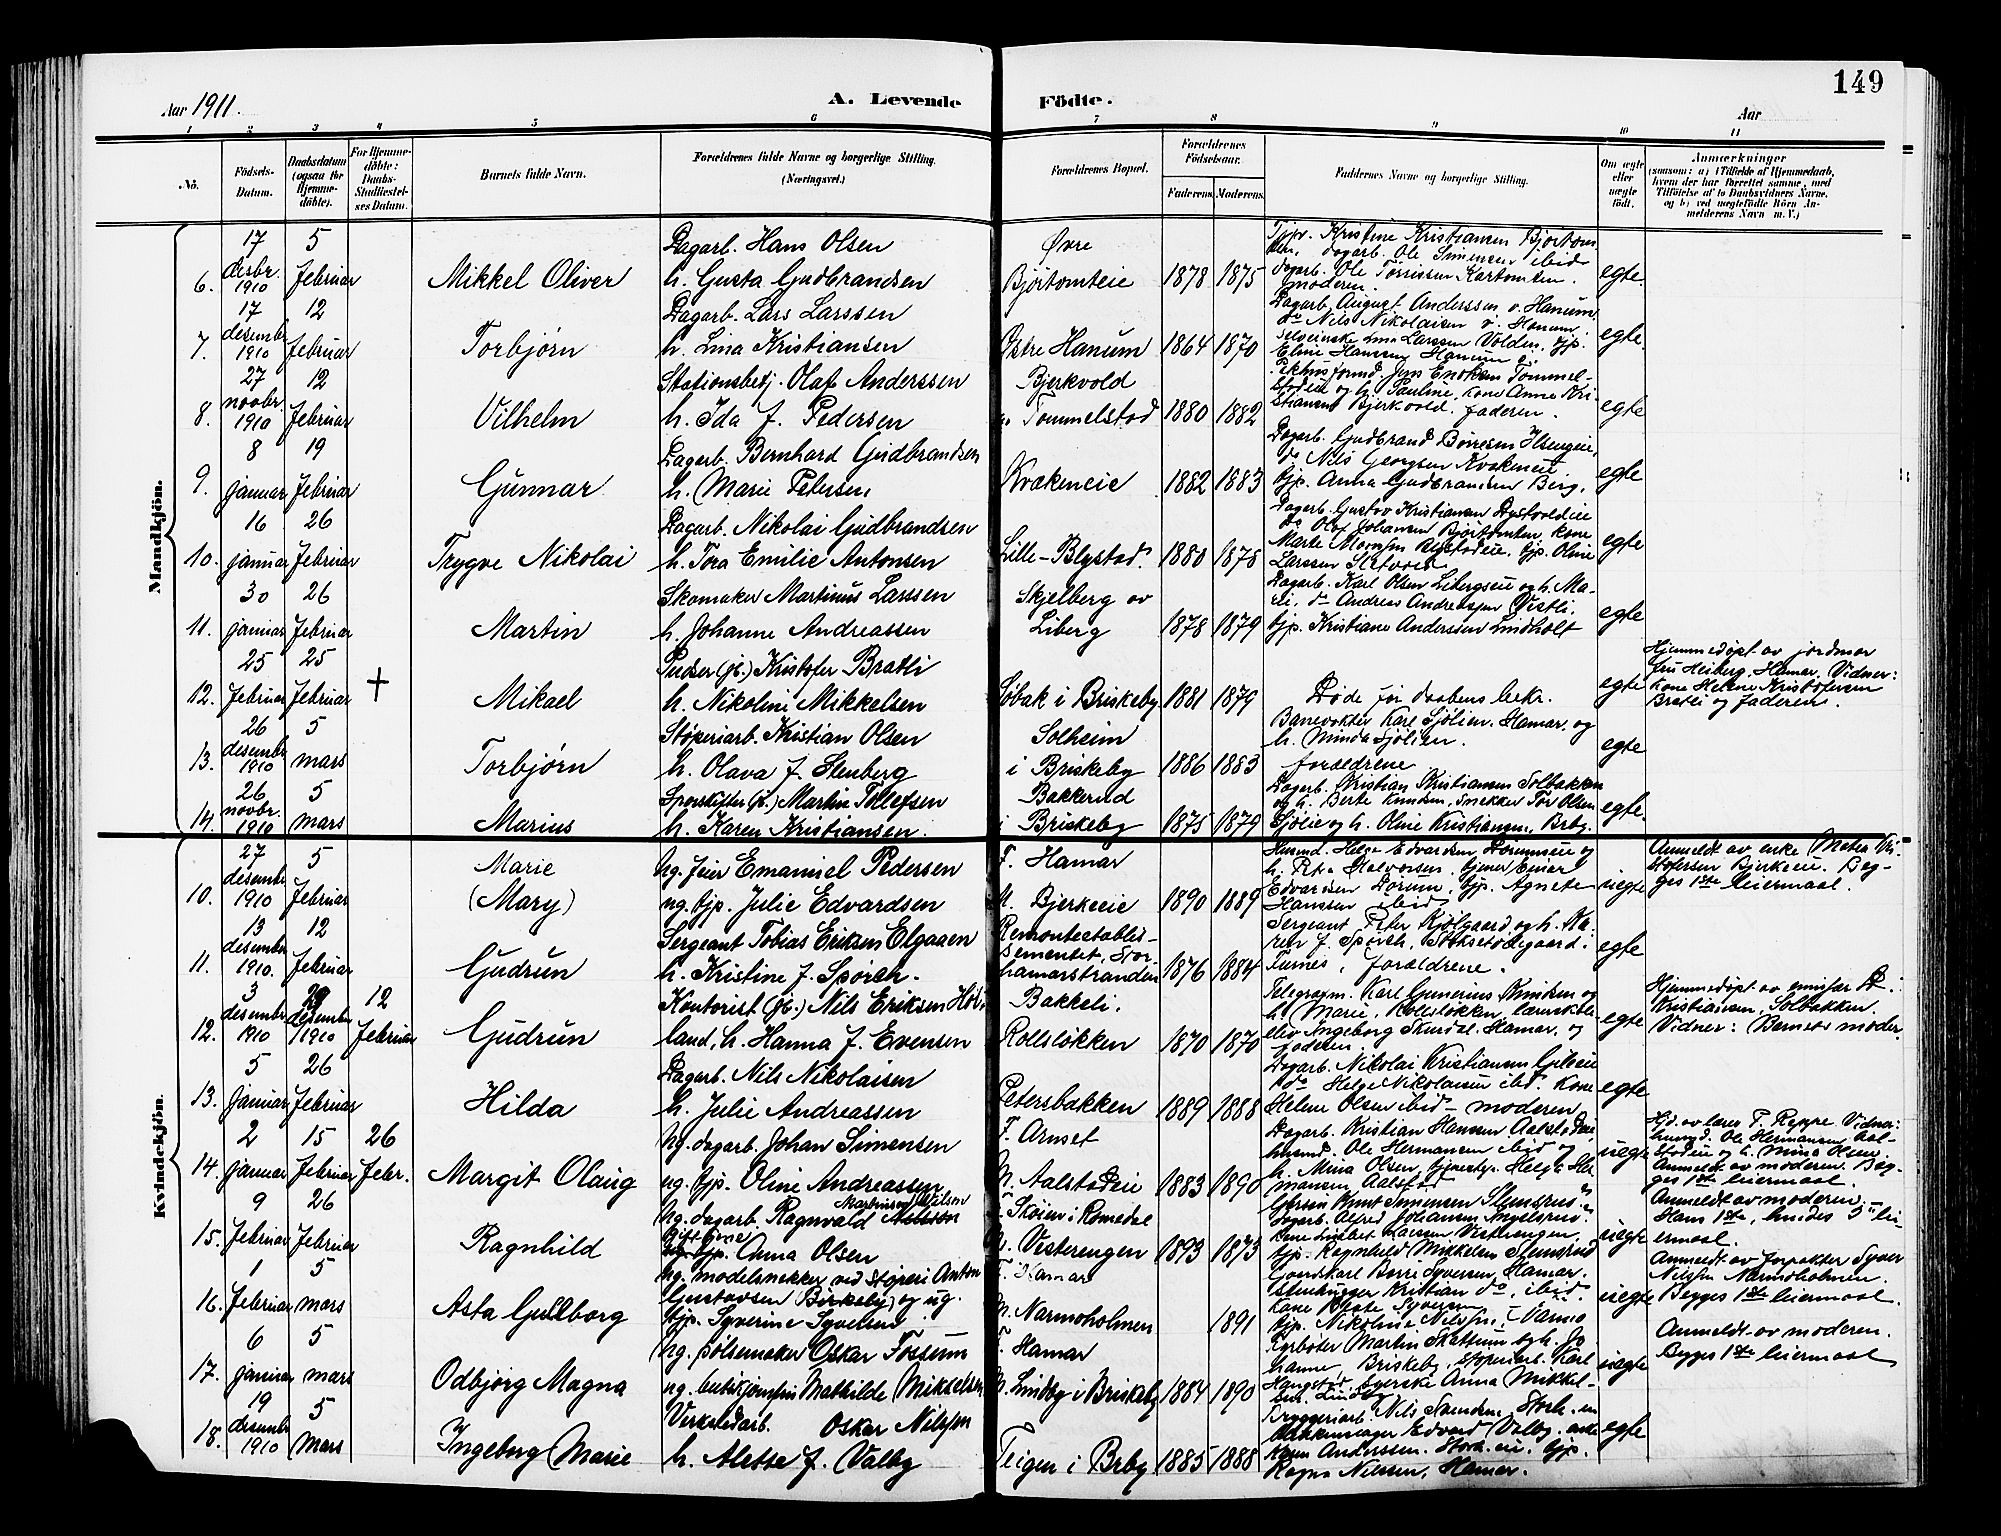 149
Aar 1911.
A. Levende Födte.
Aar
1 2 3 4 5 6 7 8 9 10 11
No.
Födsels-Datum.
Daabsdatum (ogsaa for Hjemme-döbte).
For Hjemme-döbte: Daabs-Stadfæstel-ses Datum.
Barnets fulde Navn.
Forældrenes fulde Navne og borgerlige Stilling. (Næringsvei.)
Forældrenes Bopæl.
Forældrenes Födselsaar.
Faderens. Moderens.
Faddernes Navne og borgerlige Stilling.
Om ægte eller uægte födt.
Anmærkninger
(saasom: a) i Tilfælde af Hjemmedaab, hvem der har forrettet samme, med Tilföielse af to Daabsvidners Navne, og b) ved uægtefödte Börn An-melderens Navn m. V.)
Mandkjön.
6. 17 desbr. 1910
5 Februar
Mikkel Oliver
Dagarb. Hans Olsen
h. Gusta Gudbrandsen
Øvre
Bjørtomteie
1878 1875
dagarb. Ole Simensen ibid
moderen.
egte.
7. 17 desembr 1910
12 Februar
Torbjørn
Dagarb. Lars Larssen
h. Lina Kristiansen
Østre Hanum
1864 1870
Dagarb. August Anderssen v. Hanum
do Nils Nikolaisen
egte.
8. 27 novbr. 1910
12 Februar
Vilhelm
Stationsbetj. Olaf Anderssen
h. Ida f. Pedersen
Bjerkvold
Tommelstad
1880 1882
Jens Enoksen Tommel-
stad og h. Pauline, kone Anna Kri-
stiansen Bjerkvold. faderen.
egte
9. 8 januar
19 Februar
Gunnar
Dagarb. Bernhard Gudbrandsen
h. Marie Petersen
Kvækeneie
1882 1883
do Nils Georgsen
tjp. Anna Gudbrandsen Berg.
egte
10. 16 januar
26 Februar
Trygve Nikolai
Dagarb. Nikolai Gudbrandsen
h. Tora Emilie Antonsen
Lille-Blystad.
1880 1878
Dagarb. Gustav Kristiansen
do Olaf Johansen Bjørtomten, kone
tjp. Oline
Larssen
egte
11. 30 januar
26 Februar
Martin
Skomaker Martinus Larssen
h. Johanne Andreassen
Skjelberg av
Liberg
1878 1879
Dagarb. Karl Olsen Libergeie og h. Ma-
ri. do Andreas Andreassen Vestli.
tjp. Kristiane Anderssen Lindholt
egte
12. 25 Februar
25 Februar
†
Mikael
Pudser (jb.) Kristofer Bratli
h. Nikoline Mikkelsen
Løbak i Briskeby
1881 1879
Døde før daabens bekr.
egte
Hjemmedøpt av jordmor
fru Heiberg, Hamar. Vidner:
Kone Helene Kristofersen
Bratli og faderen.
13. 26 desembr 1910
5 mars
Torbjørn
Støperiarb. Kristian Olsen
h. Olava f. Stenberg
Solheim
i Briskeby
1886 1883
Banevokter Karl Sjølien. Hamar. og
h. Minda Sjølien.
forældrene
egte
14. 26 novbr. 1910
5 mars
Marius
Sporskifter (jb.) Martin Tollefsen
h. Karen Kristiansen.
Bakkerud
i Briskeby
1875 1879
Dagarb. Kristian Kristiansen Solbakken
og h. Berte Knudsen, snekker Tor Olsen
Sjølie og h. Oline Kristiansen, Brby.
egte.
Kvindekjön.
10. 27 desembr 1910
5 Februar
Marie
(Mary)
Ug. feier Emanuel Pedersen
ug. tjp. Julie Edvardsen
F. Hamar
M. Bjerkeeie
1890 1889
Husmd. Helge Edvardsen
Edvardsen Dorum, tjp. Agnete
Hanssen ibid
uegte
Anmeldt av enke
Bjerkeeie. Beg-
ges 1ste leiermaal.
11. 13 desembr 1910.
12 Februar
Gudrun
Sergeant Tobias Eriksen Elgaaen
h. Kristine f. Spørch.
Remonteetablis-
sementet, Stor-
hamarstranden
1876 1884
Sergeant Peter Kjølgaard og h. Ka-
ren f. Spørch,
Furnes, forældrene.
egte
12. 3 desembr 1910
29 desembr 1910
12 Februar
Gudrun
Kontorist (jb.) Nils Eriksen Høi-
land, h. Hanna f. Evensen
Bakkeli.
Rollsløkken
1870 1870
Telegrafm. Karl Gunerius Knudsen og
h. Marie, Rollsløkken, lærerskole-
elev Ingeborg Skurdal, Hamar, og
faderen.
egte
Hjemmedøpt av
Kristiansen, Solbakken.
Vidner: Barnets moder.
13. 5 januar
26 Februar
Hilda
Dagarb. Nils Nikolaisen
h. Julie Andreassen
Petersbakken
1889 1888
Dagarb. Nikolai Kristiansen
do Helge Nikolaisen ibid. Kone
Helene Olsen ibid – moderen
egte
14. 2 januar
15 Februar
26 Febr.
Margit Olaug
Ug. dagarb. Johan Simensen
ug. tjp. Oline Andreassen
F. Arnset
M. Aalstadeie
1883 1890
Dagarb. Kristian Hanssen Aalstadeie,
husmd. Ole Hermansen ibid og
h. Mina Olsen, Helge Her-
mansen Aalstad
uegte
Hjd. av lærer T. Reppe. Vidner:
husmd. Ole Hermansen Aal-
stadeie og h. Mina Olsen.
Anmeldt av moderen. Beg-
ges 1ste leiermaal.
15. 9 Februar
26 Februar
Ragnhild
Martinsen
Ug. dagarb. Ragnvald
tjp. Anna Olsen
F. Skøien i Romedal
M. Visterengen
1893 1873
Knut Simensen Stensrud
dagarb. Alfred Johansen
tjp. Ragnhild Mikkelsen Stensrud
uegte
Anmeldt av moderen.
Hans 1ste, hendes 3. lei-
ermaal.
16. 1 Februar
5 mars
Asta Gudborg
Ug. modelsnekker ved Støperi Anton
Gustavsen (Birkeby) og ug.
tjp. Syverine Syversen
F. Hamar
M. Narmoholmen
1891
Gaardskarl Berre Syversen, Hamar.
Stenhugger Kristian do, ibid
kone Beate Syversen
tjp. Nikoline Nilssen,
uegte
Anmeldt av forpakter Syver
Nilssen Narmoholmen.
Begges 1ste leiermaal.
17. 6 januar
5 mars
Odbjørg Magna
Ug. pølsemaker Oskar Fossum
ug. butikjomfru Mathilde Mikkelsen
F. Hamar
M. Lindby i Briskeby
1884 1890
Fyrbøter Martin Skattum og h. Jo-
hanne, Briskeby, støperiarb. Karl
Anna Mikkel-
sen, Lindby
uegte
Anmeldt av moderen.
Begges 1ste leiermaal
18. 19 desembr 1910
5 Mars
Ingeborg Marie
Verkstedarb. Oskar Nilssen
h. Alette f. Valby
Teigen i Brby
1885 1888
Bryggeriarb. Nils Svendsen, Storh.
Edvard Valby, enke
Karen Anderssen. Storh. tjp.
Ragna Nilssen, Hamar.
egte